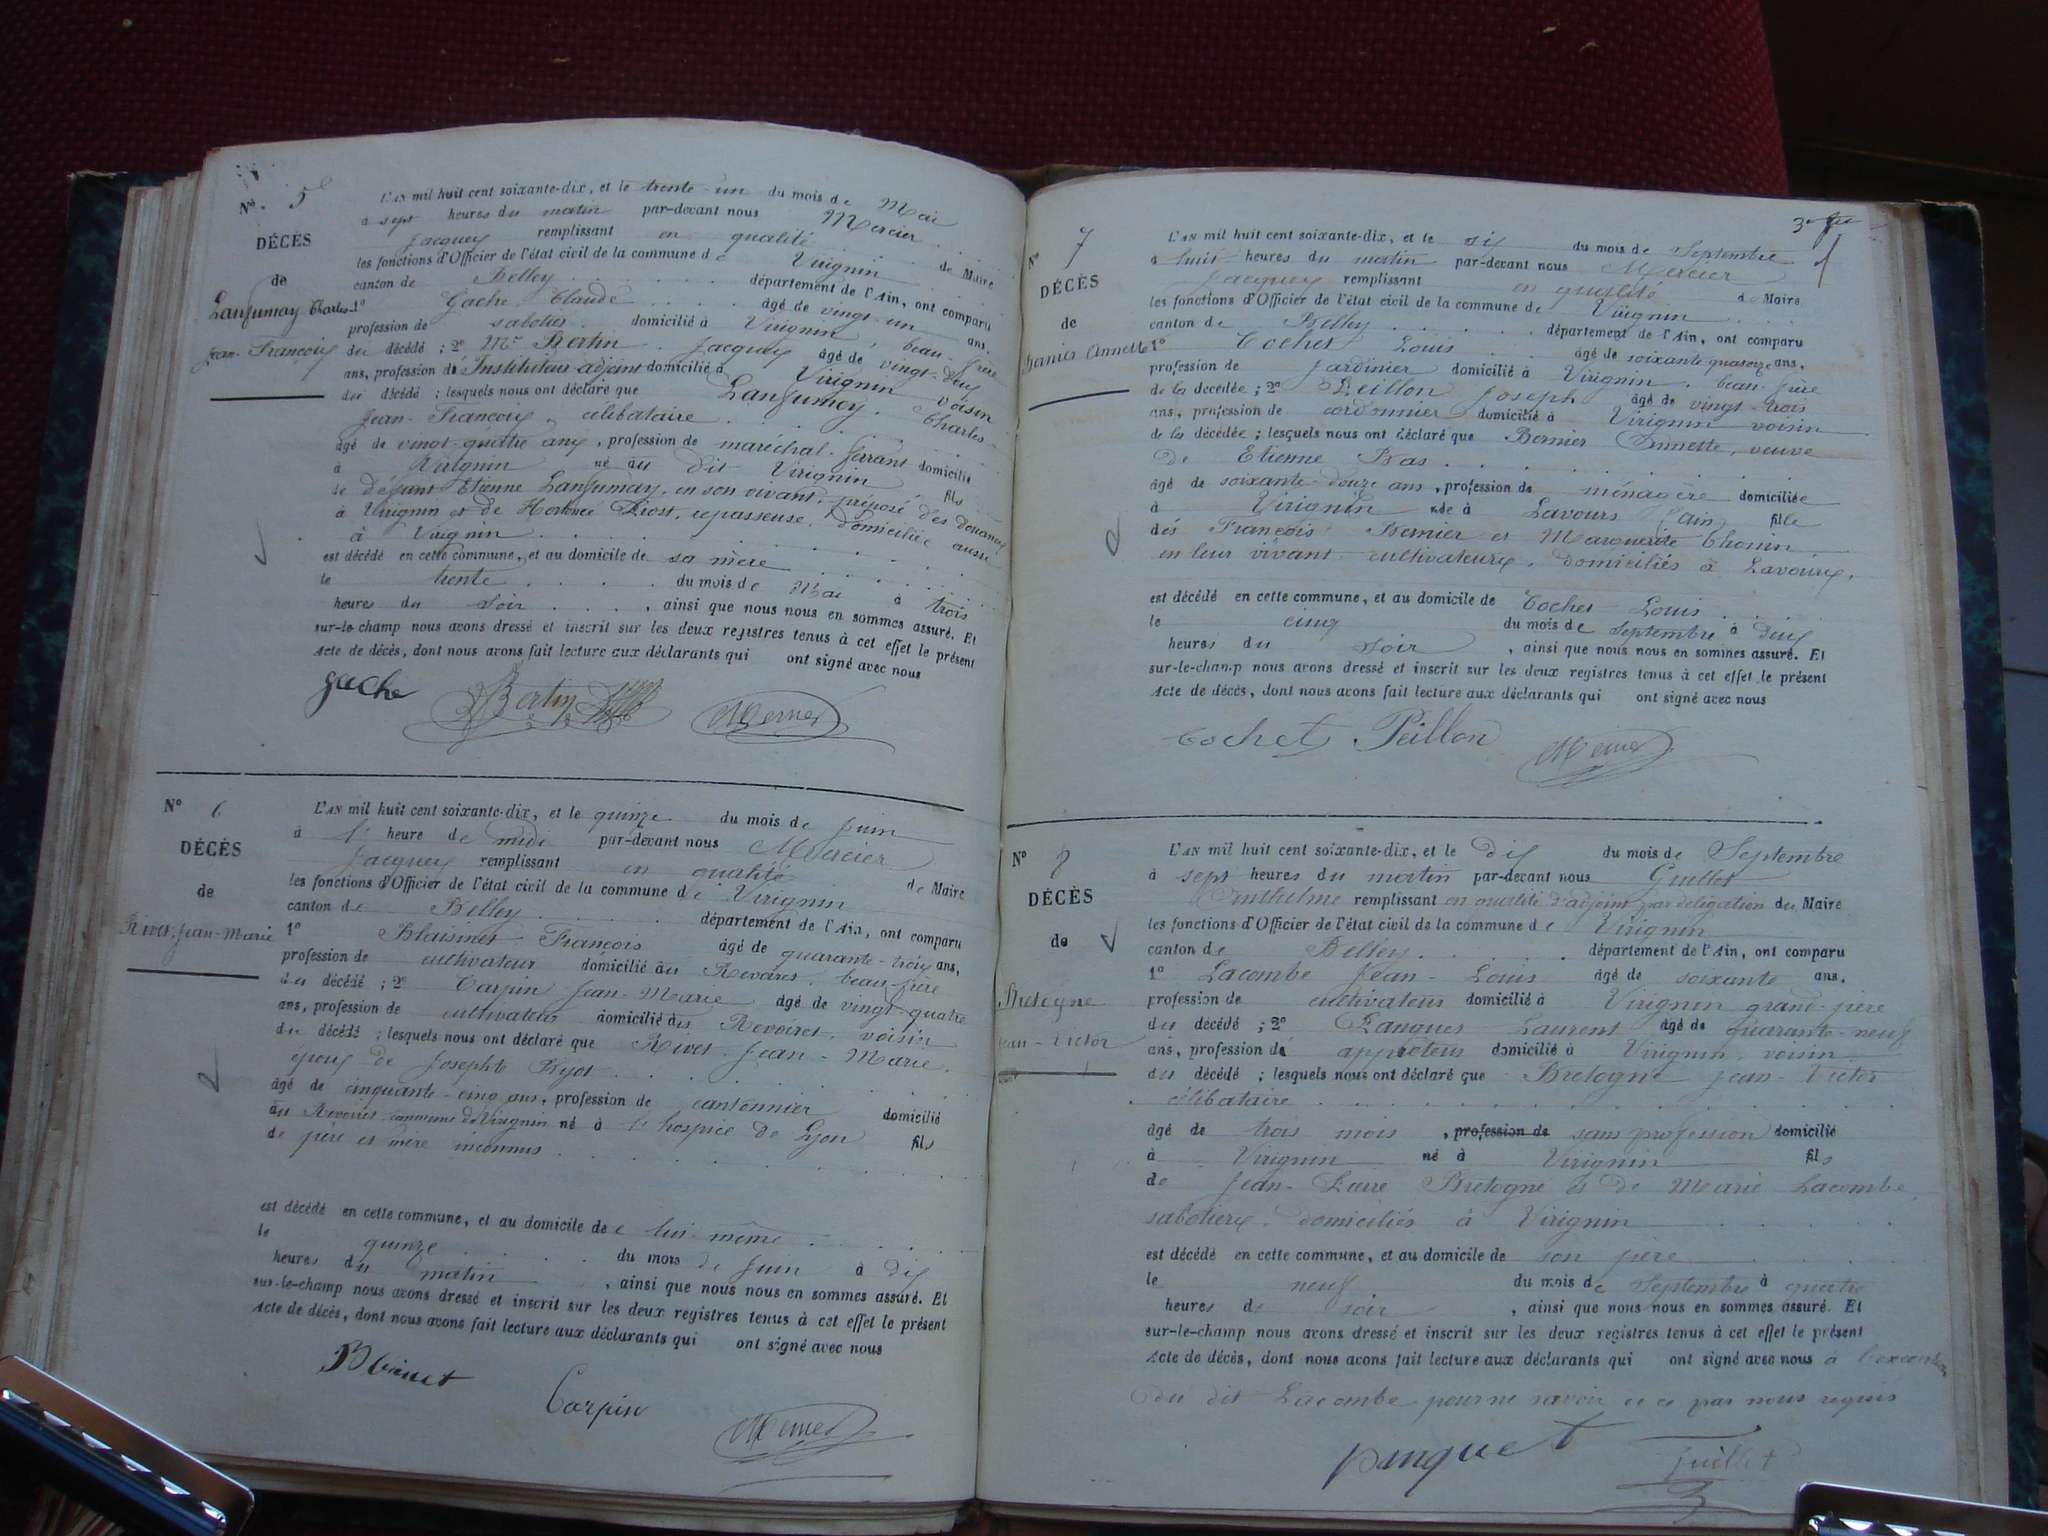 N° 5
DÉCÈS
de
Charles
Jean-François
L'AN mil huit cent soixante-dix, et le trente-un du mois de Mai
à sept heures du matin par-devant nous Mercier
Jacques remplissant en qualité de Maire
les fonctions d'Officier de l'état civil de la commune de Virignin
canton de Belley département de l'Ain, ont comparu
1° Gache Claude âgé de vingt-un ans,
profession de sabotier domicilié à Virignin, beau-frère
du décédé ; 2° Mr Bertin Jacques âgé de vingt-deux
ans, profession de Instituteur-adjoint domicilié à Virignin voisin
du décédé ; lesquels nous ont déclaré que Charles-
Jean-François, célibataire
âgé de vingt-quatre ans, profession de maréchal-ferrant domicilié
à Virignin né au dit Virignin fils
de défunt Etienne en son vivant, préposé des douanes
à Virignin et de repasseuse, domiciliée aussi
à Virignin
est décédé en cette commune, et au domicile de sa mère
le trente du mois de Mai à trois
heures du soir, ainsi que nous nous en sommes assuré. Et
sur-le-champ nous avons dressé et inscrit sur les deux registres tenus à cet effet le présent
acte de décès, dont nous avons fait lecture aux déclarants qui ont signé avec nous
gache Bertin Mercier
N° 6
DÉCÈS
de
Rivet Jean-Marie
L'AN mil huit cent soixante-dix, et le quinze du mois de Juin
à l' heure de midi par-devant nous Mercier
Jacques remplissant en qualité de Maire
les fonctions d'Officier de l'état civil de la commune de Virignin
canton de Belley département de l'Ain, ont comparu
1° François âgé de quarante-trois ans,
profession de cultivateur domicilié au Revoiret, beau-frère
du décédé ; 2° Carpin Jean-Marie âgé de vingt-quatre
ans, profession de cultivateur domicilié au Revoiret, voisin
du décédé ; lesquels nous ont déclaré que Rivet Jean-Marie,
époux de Josephte
âgé de cinquante-cinq ans, profession de cantonnier domicilié
au Revoiret commune de Virignin né à l'hospice de Lyon fils
de père et mère inconnus
est décédé en cette commune, et au domicile de lui-même
le quinze du mois de Juin à dix
heures du matin, ainsi que nous nous en sommes assuré. Et
sur-le-champ nous avons dressé et inscrit sur les deux registres tenus à cet effet le présent
acte de décès, dont nous avons fait lecture aux déclarants qui ont signé avec nous
Carpin Mercier
3
N° 7
DÉCÈS
de
Annette
L'AN mil huit cent soixante-dix, et le six du mois de Septembre
à huit heures du matin par-devant nous Mercier
Jacques remplissant en qualité de Maire
les fonctions d'Officier de l'état civil de la commune de Virignin
canton de Belley département de l'Ain, ont comparu
1° Cochet Louis âgé de soixante-quatorze ans,
profession de Jardinier domicilié à Virignin, beau-frère
de la décédée ; 2° Peillon Joseph âgé de vingt-trois
ans, profession de cordonnier domicilié à Virignin voisin
de la décédée ; lesquels nous ont déclaré que Bernier Annette, veuve
de Etienne Bas
âgé de soixante-douze ans, profession de ménagère domiciliée
à Virignin née à Lavours (ain) fille
des François Bernier et Marguerite Thonin
en leur vivant cultivateurs, domiciliés à Lavours,
est décédé en cette commune, et au domicile de Cochet Louis
le cinq du mois de Septembre à deux
heures du soir, ainsi que nous nous en sommes assuré. Et
sur-le-champ nous avons dressé et inscrit sur les deux registres tenus à cet effet le présent
acte de décès, dont nous avons fait lecture aux déclarants qui ont signé avec nous
Cochet Peillon Mercier
N° 8
DÉCÈS
de
Bretogne
Jean-Victor
L'AN mil huit cent soixante-dix, et le dix du mois de Septembre
à sept heures du matin par-devant nous Guillet
Anthelme remplissant en qualité d'adjoint par délégation du Maire
les fonctions d'Officier de l'état civil de la commune de Virignin
canton de Belley département de l'Ain, ont comparu
1° Lacombe Jean-Louis âgé de soixante ans,
profession de cultivateur domicilié à Virignin grand-père
du décédé ; 2° Laurent âgé de quarante-neuf
ans, profession de domicilié à Virignin, voisin
du décédé ; lesquels nous ont déclaré que Bretogne Jean-Victor
célibataire
âgé de trois mois, profession de sans profession domicilié
à Virignin né à Virignin fils
de Jean-Pierre Bretogne et de Marie Lacombe,
sabotiers, domiciliés à Virignin
est décédé en cette commune, et au domicile de son père
le neuf du mois de Septembre à quatre
heures de soir, ainsi que nous nous en sommes assuré. Et
sur-le-champ nous avons dressé et inscrit sur les deux registres tenus à cet effet le présent
acte de décès, dont nous avons fait lecture aux déclarants qui ont signé avec nous à l'exception
du dit Lacombe pour ne savoir de ce par nous requis
panquet Guillet